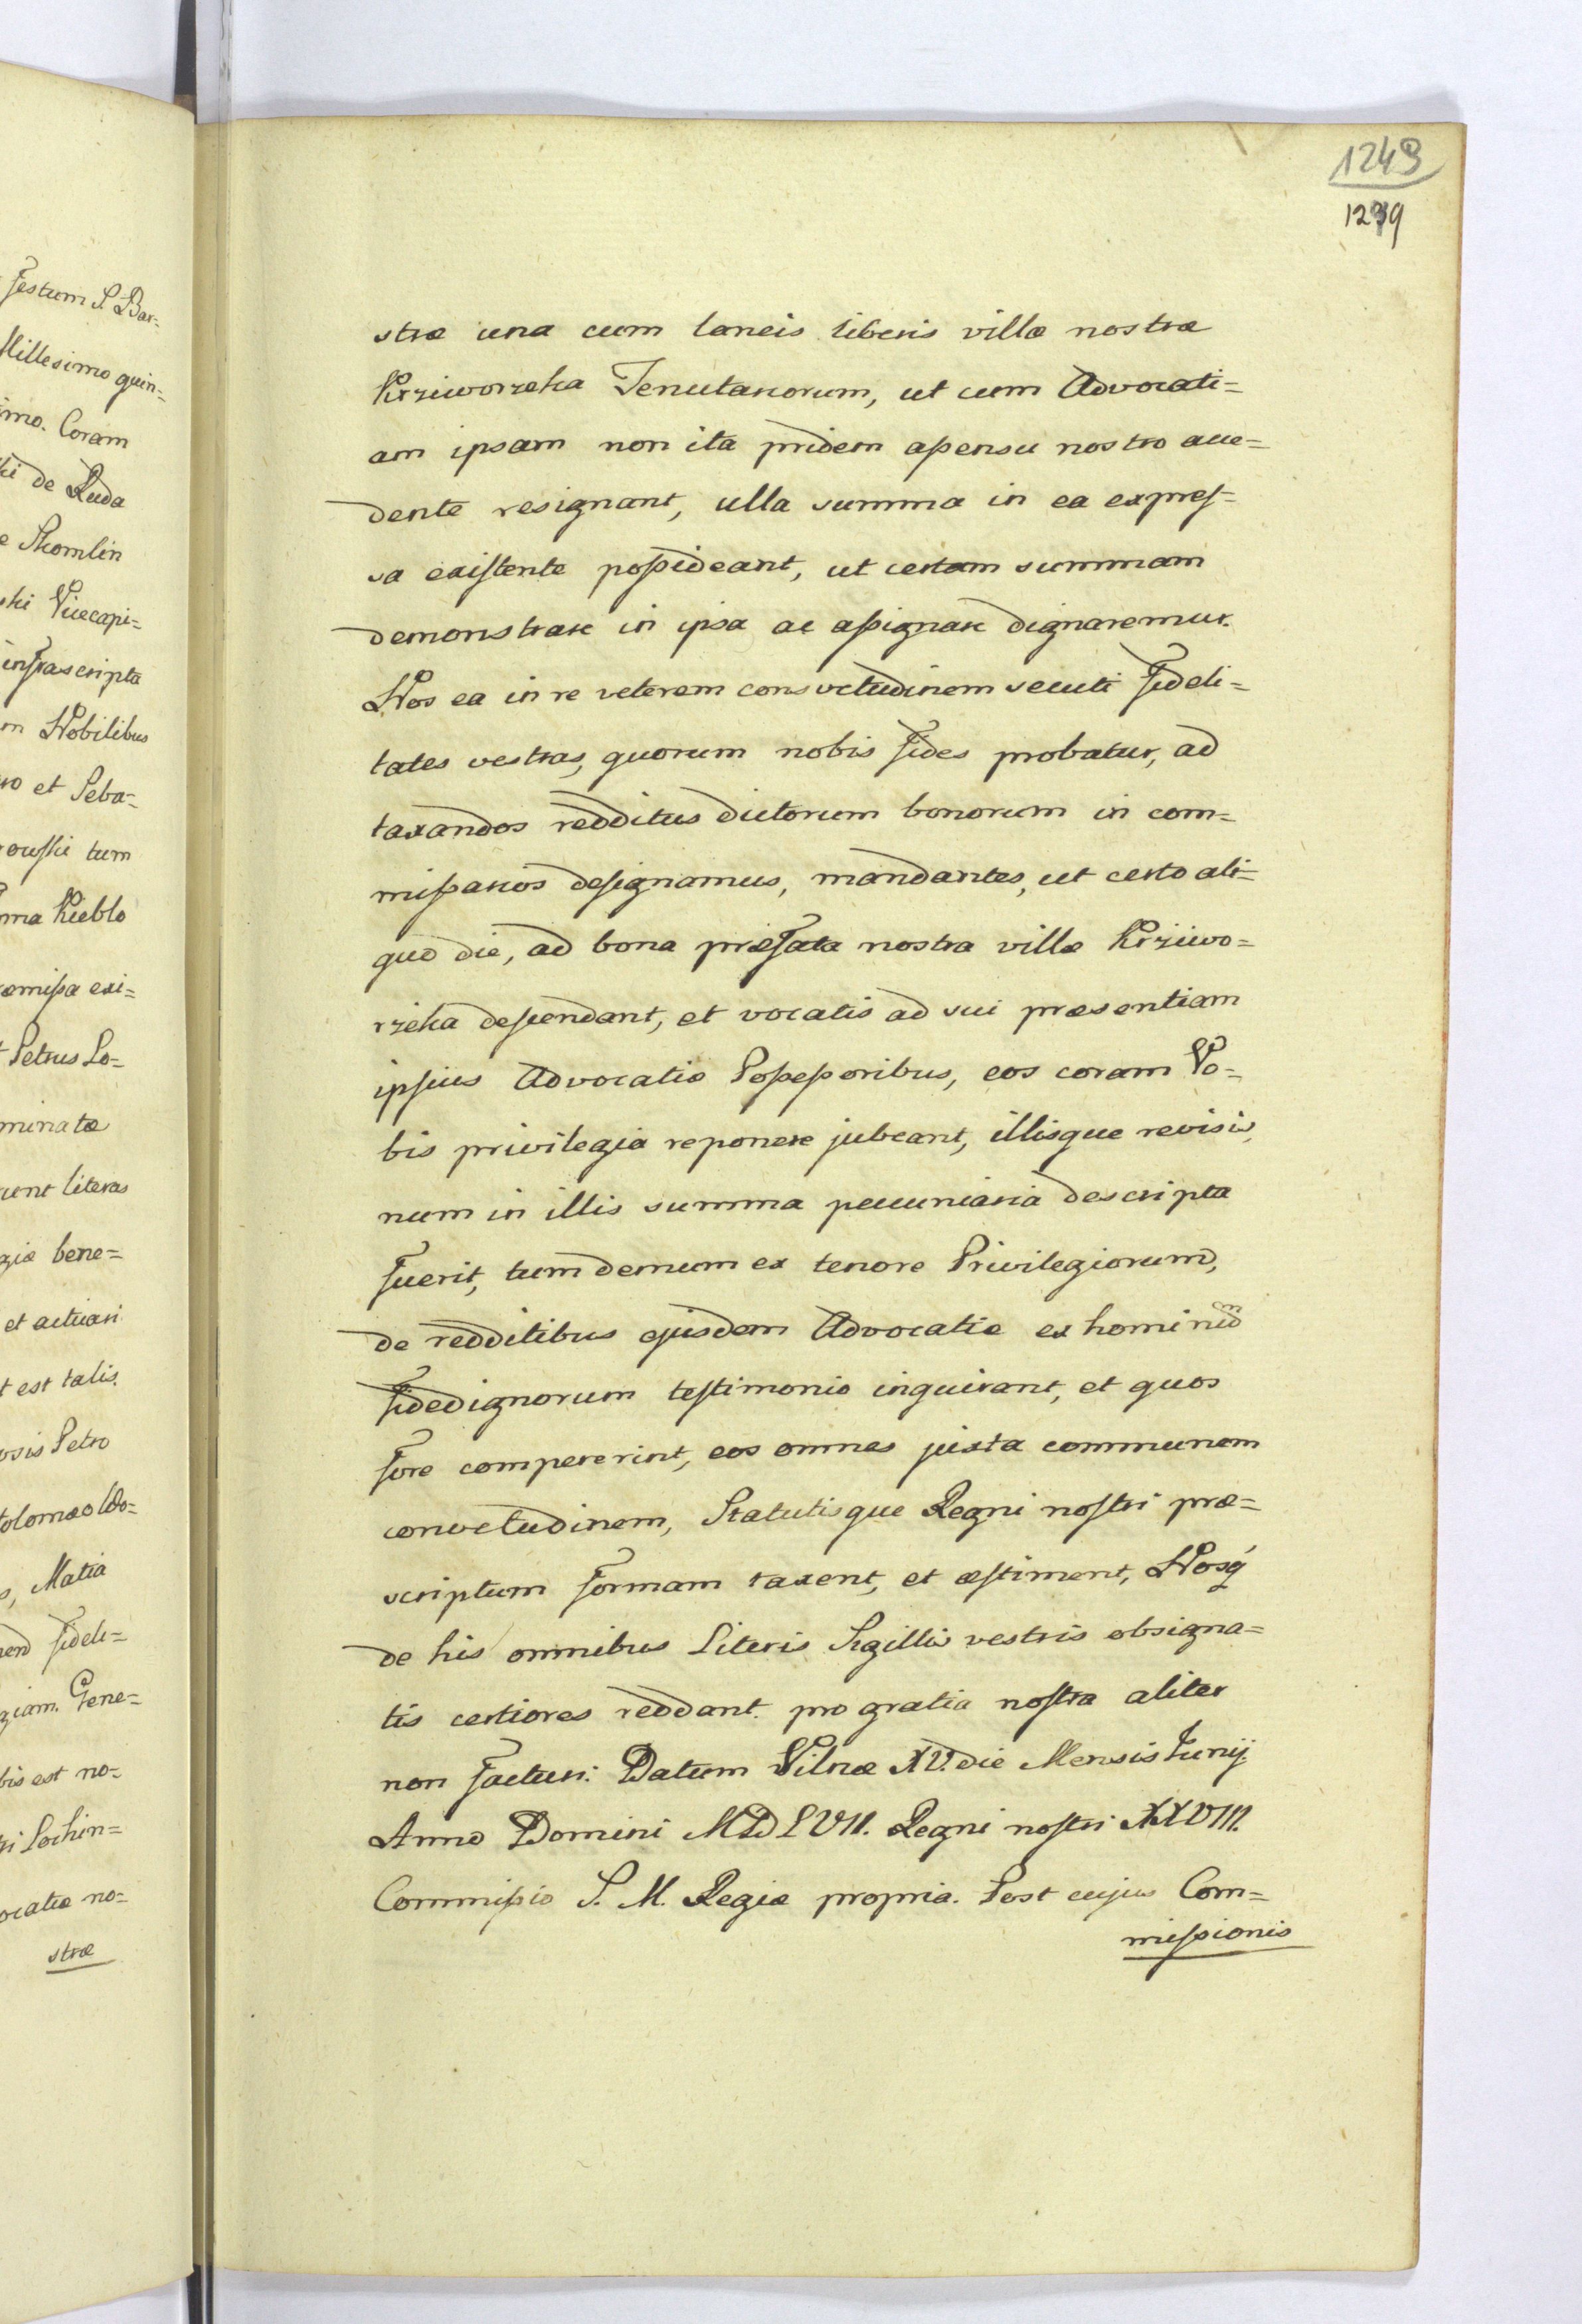 festum S. Bar=
Millesimo quin=
imo. Coram
ki de Ruda
e Skomlin
ski Vicecapi=
infrascripta
m Nobilibus
ro et Seba=
ouſki tum
ma Kieblo
remiſsa exi=
t Petrus Lo=
minatæ
unt literas
giæ bene=
et actuari
t est talis.
osis Petro
tolomæo Wo=
s, Matia
end fideli=
giam. Gene=
bis est no=
ri Lochin=
ocatiæ no=
stræ
1243
1239
stræ una cum laneis liberis villæ nostræ
Krziworzeka Tenutariorum, ut cum Advocati=
am ipsam non ita pridem aſsensu nostro acce=
dente resignant, ulla summa in ea expreſ=
sa exiſtente poſsideant, ut certam summam
demonstrare in ipsa ac aſsignare dignaremur.
Nos ea in re veterem consvetudinem secuti fideli=
tates vestras, quorum nobis fides probatur, ad
taxandos redditus dictorum bonorum in com=
miſsarios deſignamus, mandantes, ut certo ali=
quo die, ad bona præfata nostra villæ Krziwo=
rzeka deſcendant, et vocatis ad sui præsentiam
ipſius Advocatiæ Poſseſsoribus, eos coram Vo=
bis privilegia reponere jubeant, illisque revisis,
num in illis summa pecuniaria descripta
fuerit, tum demum ex tenore Privilegiorum,
de redditibus ejusdem Advocatiæ ex hominum
fidedignorum teſtimonio inquirant, et quos
fore compererint, eos omnes juxta communem
convetudinem, Statutisque Regni noſtri præ=
scriptum formam taxent, et æſtiment, Nosq́
de his omnibus Literis Sigillis vestris obsigna=
tis certiores reddant. pro gratia noſtra aliter
non facturi. Datum Vilnæ XV. die Mensis Junij.
Anno Domini MDLVII. Regni noſtri XXVIII.
Commiſsio S. M. Regiæ propria. Post cujus Com=
miſsionis